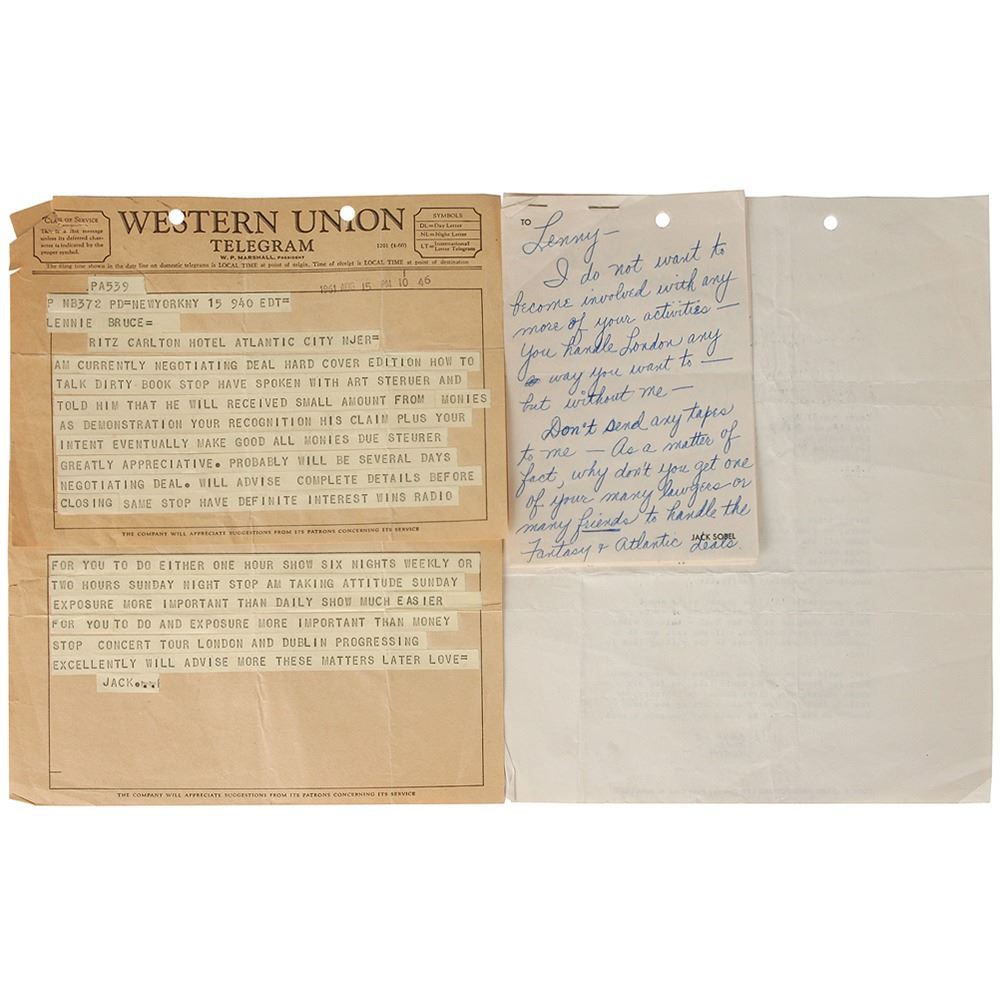 CLASS OF SERVICE
This is a fast message
unless its deferred char-
acter is indicated by the
proper symbol.
WESTERN UNION
TELEGRAM
W. P. MARSHALL, PRESIDENT
1201 (4-60)
SYMBOLS
DL=Day Letter
NL=Night Letter
LT=International Letter Telegram
The filing time shown in the date line on domestic telegrams is LOCAL TIME at point of origin. Time of receipt is LOCAL TIME at point of destination
PA539
1961 AUG 15 PM 10 46
P NB372 PD=NEWYORKNY 15 940 EDT=
LENNIE BRUCE=
RITZ CARLTON HOTEL ATLANTIC CITY NJER=
AM CURRENTLY NEGOTIATING DEAL HARD COVER EDITION HOW TO
TALK DIRTY BOOK STOP HAVE SPOKEN WITH ART STERUER AND
TOLD HIM THAT HE WILL RECEIVED SMALL AMOUNT FROM MONIES
AS DEMONSTRATION YOUR RECOGNITION HIS CLAIM PLUS YOUR
INTENT EVENTUALLY MAKE GOOD ALL MONIES DUE STEURER
GREATLY APPRECIATIVE. PROBABLY WILL BE SEVERAL DAYS
NEGOTIATING DEAL. WILL ADVISE COMPLETE DETAILS BEFORE
CLOSING SAME STOP HAVE DEFINITE INTEREST WINS RADIO
THE COMPANY WILL APPRECIATE SUGGESTIONS FROM ITS PATRONS CONCERNING ITS SERVICE
FOR YOU TO DO EITHER ONE HOUR SHOW SIX NIGHTS WEEKLY OR
TWO HOURS SUNDAY NIGHT STOP AM TAKING ATTITUDE SUNDAY
EXPOSURE MORE IMPORTANT THAN DAILY SHOW MUCH EASIER
FOR YOU TO DO AND EXPOSURE MORE IMPORTANT THAN MONEY
STOP CONCERT TOUR LONDON AND DUBLIN PROGRESSING
EXCELLENTLY WILL ADVISE MORE THESE MATTERS LATER LOVE=
JACK..
THE COMPANY WILL APPRECIATE SUGGESTIONS FROM ITS PATRONS CONCERNING ITS SERVICE
TO
Lenny—
I do not want to
become involved with any
more of your activities —
You handle London any
way you want to —
but without me —
Don't send any tapes
to me — As a matter of
fact, why don't you get one
of your many lawyers or
many friends to handle the
Fantasy & Atlantic deals.
JACK SOBEL